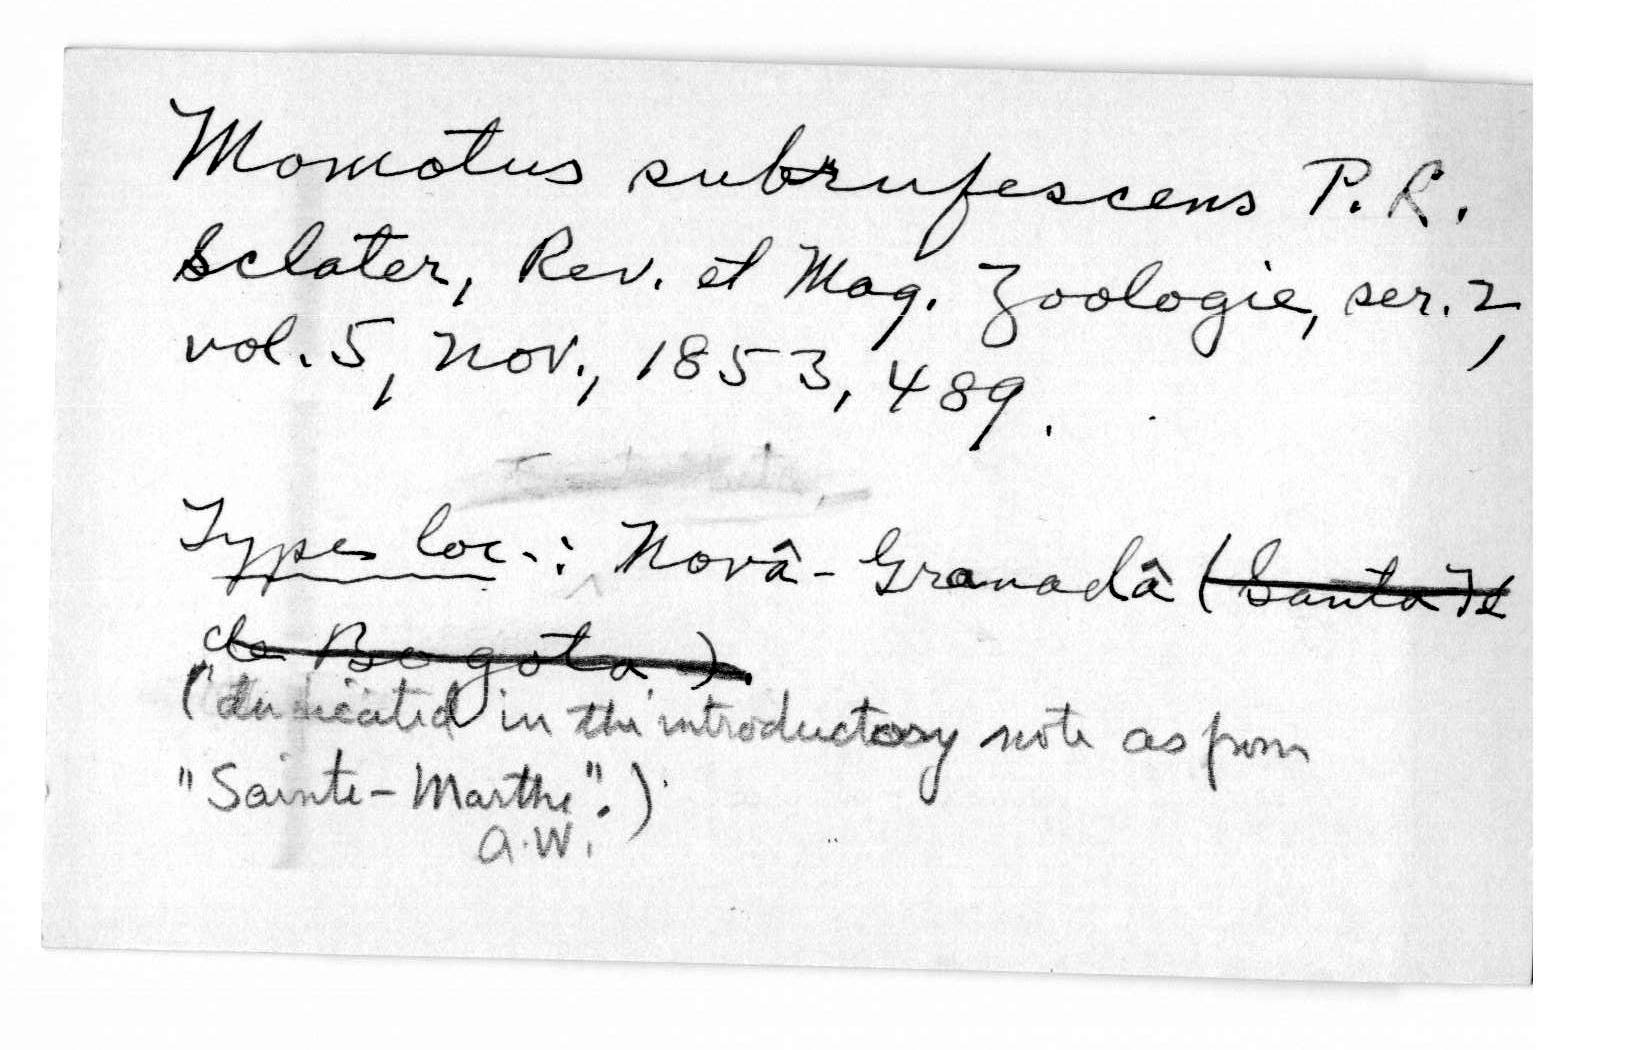 Momotus subrufescens P. R.
Sclater, Rev. et Mag. Zoologie, ser. 2,
vol. 5, Nov., 1853, 489.
Types loc.: Novâ-Granadâ (Santa Fé
de Bogota).
in the introductory note as from
"Sainte-Marthe".)
A.W.